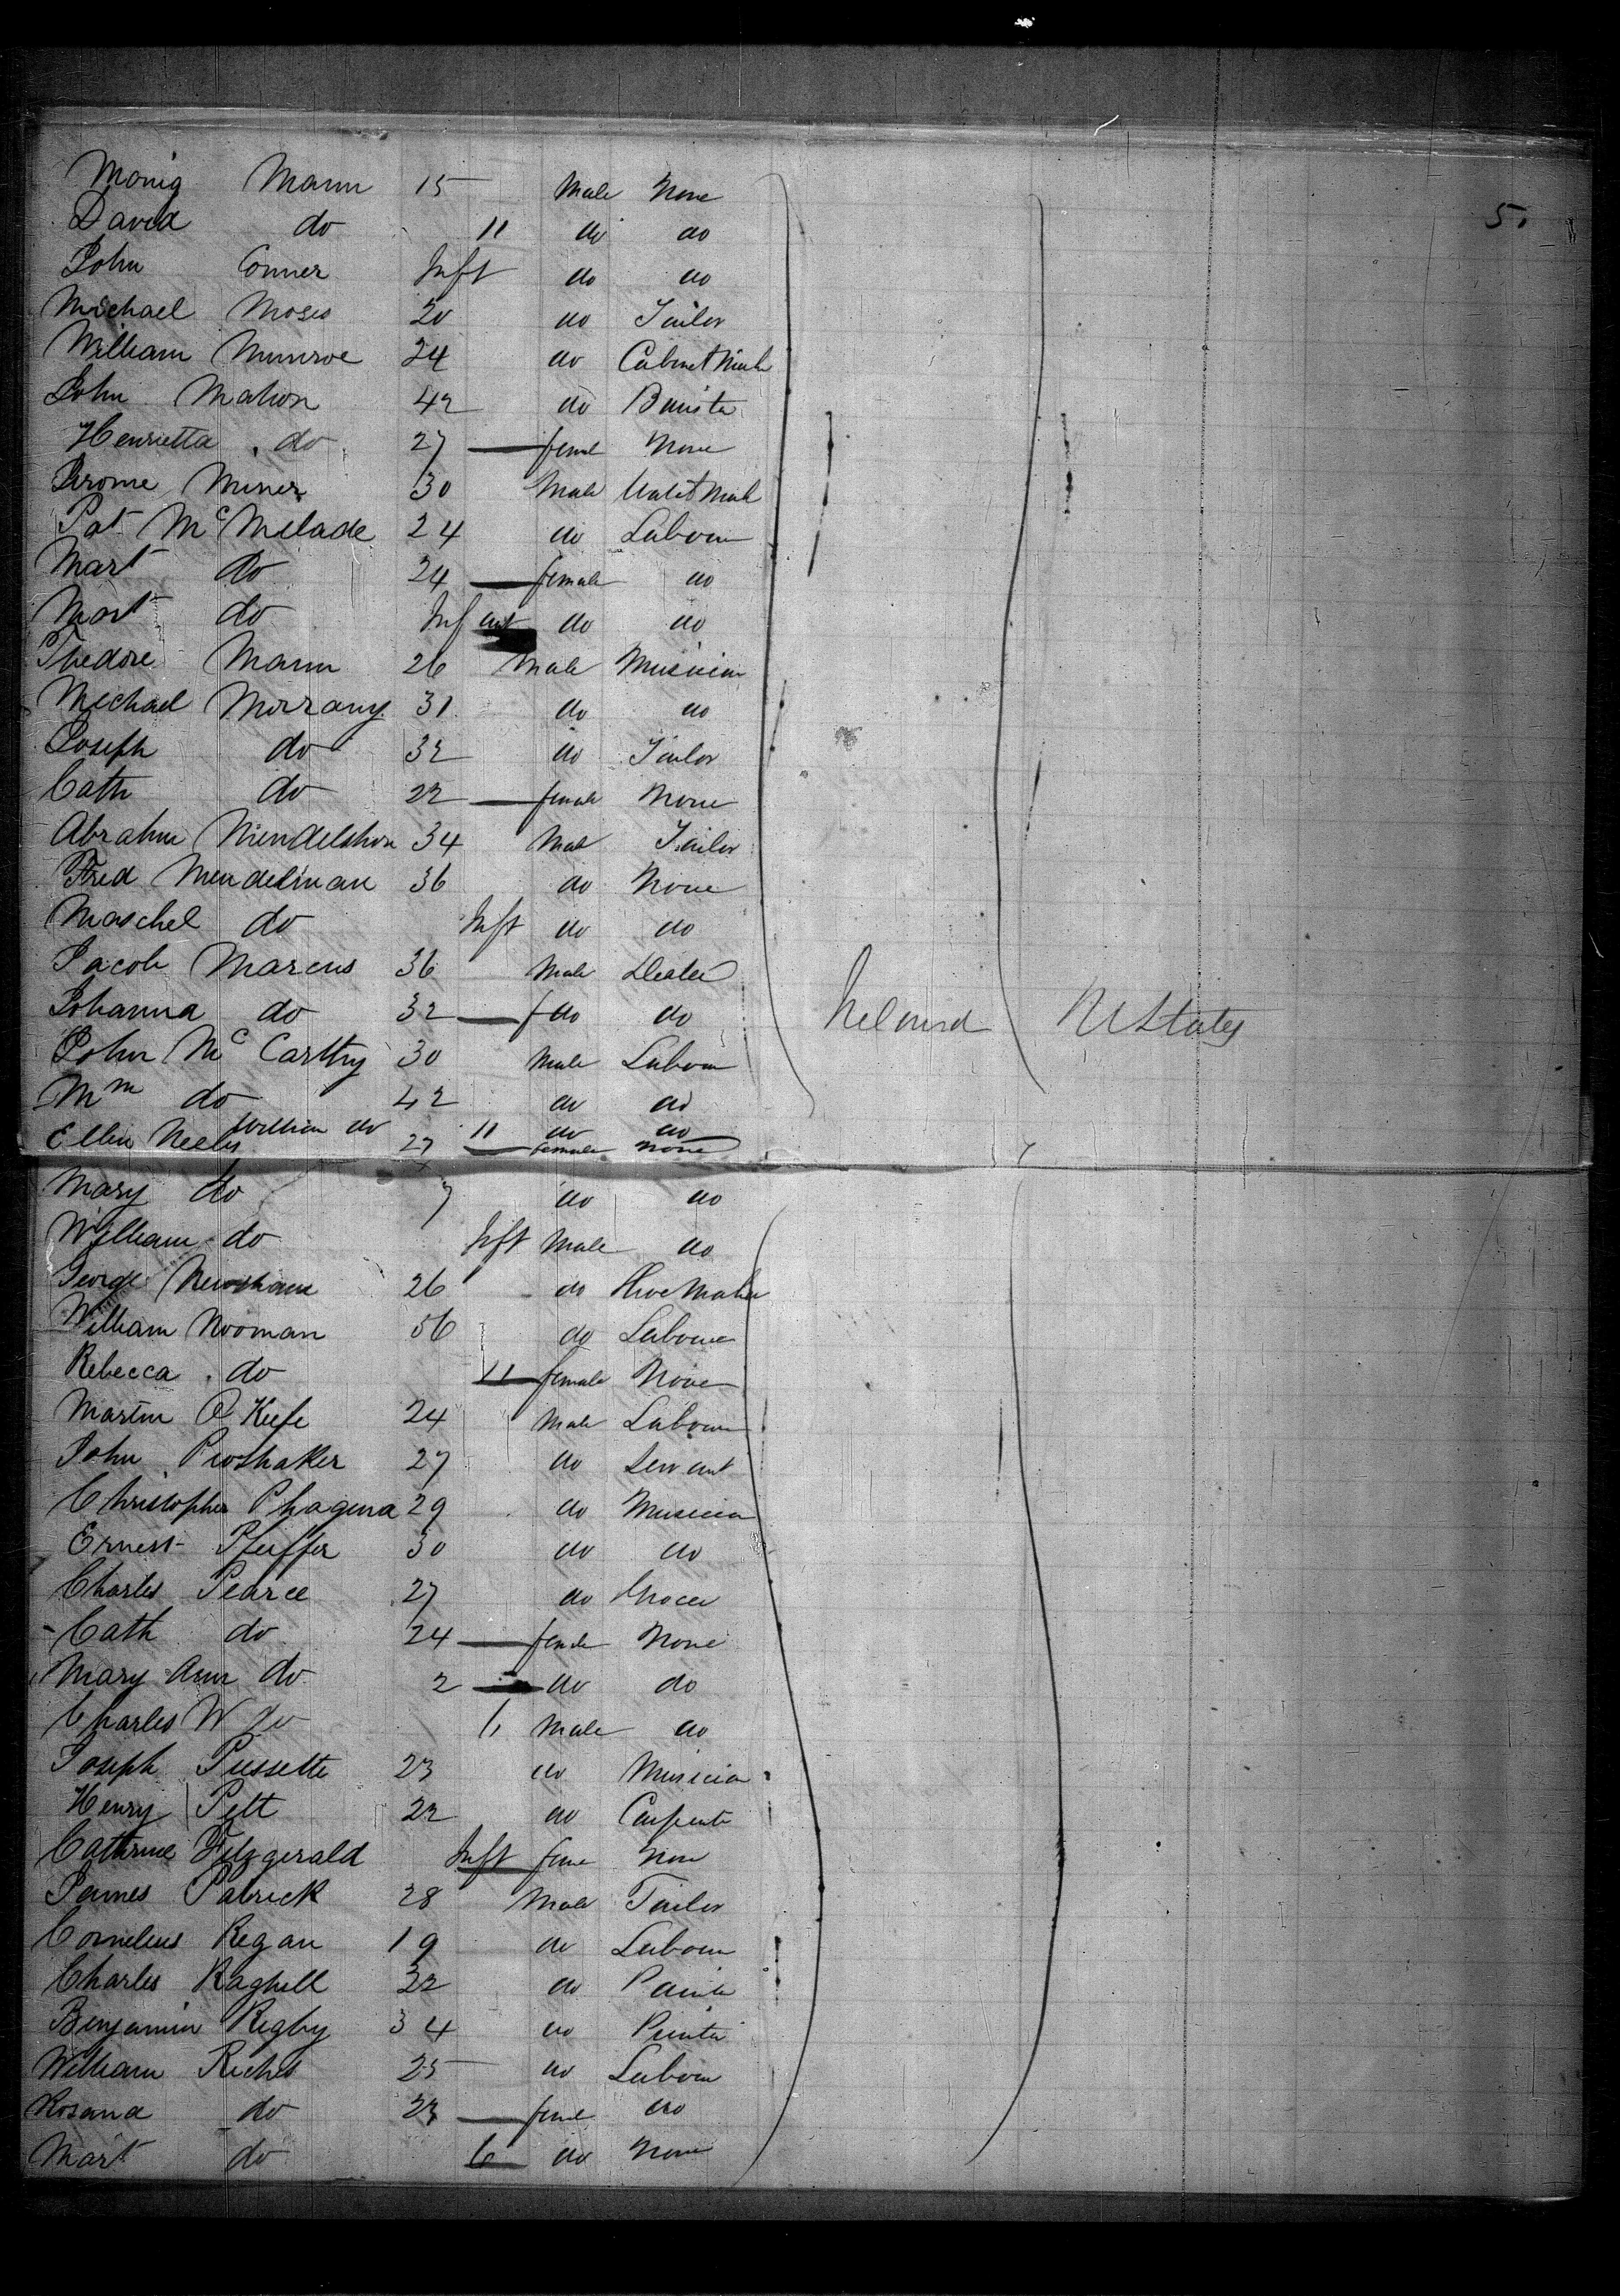 5.
Monig Mann 15 Male None
David do 11 do do
John Conner Inft do do
Michael Moses 20 do Tailor
William Munroe 24 do Cabinet Mak
John Mahon 42 do
Henrietta do 27 — femal None
Jerome Miner 30 Male Mak
Pat McMelade 24 do Labour
Mart do 24 — female do
Mart do Infant do do
Thedore Mann 26 Male Musician
Michael Morrany 31 do do
Joseph do 32 do Tailor
Cath do 22 — female None
Abrahm Mendelshon 34 Mal Tailor
Fred Mendelman 36 do None
Maschel do Inft do do
Jacob Marcus 36 Male Dealer
Johanna do 32 — f do do
Ireland U States
John Mc Carthy 30 Male Labour
Mm do 42 do do
William do 11 do do
Ellen Neeles 27 — female None
Mary do 7 do do
William do Inft Male do
George Newsham 26 do Shoe Maker
William Nooman 56 do Laboure
Rebecca do 11 female None
Martin O Keefe 24 Male Labour
John Proshaker 27 do Servant
Christopher Phagena 29 do Musician
Ernest Pfeiffer 30 do do
Charles Pearce 27 do Grocer
Cath do 24 — female None
Mary Ann do 2 — do do
Charles W do Male do
Joseph Pussette 23 do Musician
Henry Pett 22 do Carpente
Cathrine Fitzgerald Inft feme Non
James Patrick 28 Male Tailor
Cornelius Regan 19 do Labour
Charles Raghell 32 do Painte
Benjamin Rigby 34 do Printer
William Riches 25 do Labour
Rosana do 23 — femal do
Mart do 6 do None